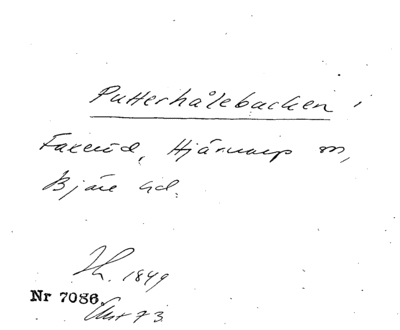 Putterhålebacken
Faxeröd, Hjärnarp sn,
Bjäre hd.
1849
Nr 7086.
73.